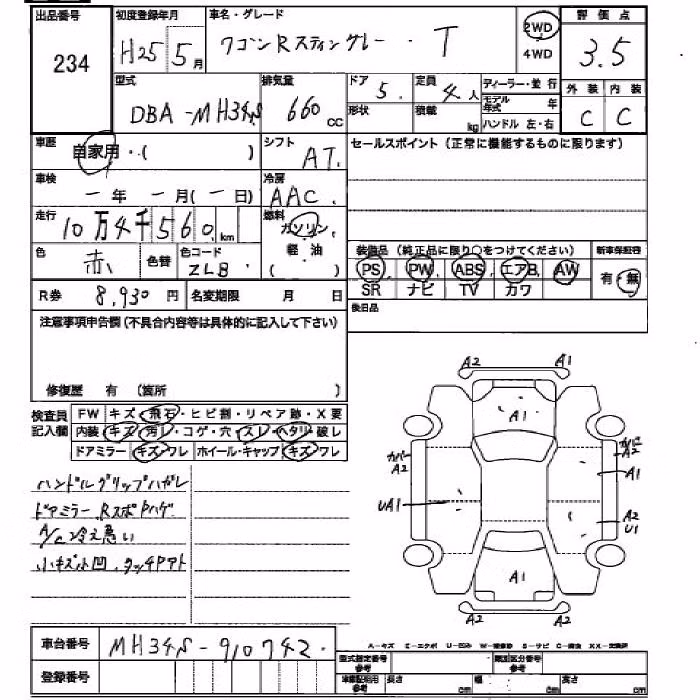 出品番号 初度登録年月 車名・グレード 2WD 4WD 評価点
234 H25 5月 ワゴンRスティングレー・T 3.5
型式 排気量 ドア 定員 ディーラー・並行 外装 内装
DBA-MH34S 660cc 5. 4人 モデル年式 年 C C
形状 積載 kg ハンドル 左・右
車歴 自家用・( ) シフト AT. セールスポイント(正常に機能するものに限ります)
車検 一年 一月(一日) 冷房 AAC.
走行 10万4千560km 燃料 ガソリン
色 赤 色替 色コード ZLB. 軽油 ( )
装備品(純正品に限り○をつけてください) 新車保証書
PS PW ABS エアB AW 有・無
SR ナビ TV カワ
R券 8,930円 名変期限 月 日 後日品
注意事項申告欄(不具合内容等は具体的に記入して下さい)
修復歴 有 (箇所 )
検査員記入欄 FW キズ・飛石・ヒビ割・リペア跡・X要
内装 キズ・汚レ・コゲ・穴・スレ・ヘタリ・破レ
ドアミラー キズ・ワレ ホイール・キャップ キズ・ワレ
ハンドルグリップハガレ
ドアミラー、RスポPハゲ
A/C冷え悪い
小キズ小凹、タッチPアト
A2 A1
A1
カバー A2 カバー A2
A1
UA1 A2 U1
A1
A2 A2
A-キズ
車台番号 MH34S-910742.
登録番号
型式指定番号 参考 類別区分番号 参考
参考 長さ cm 幅 cm 高さ cm